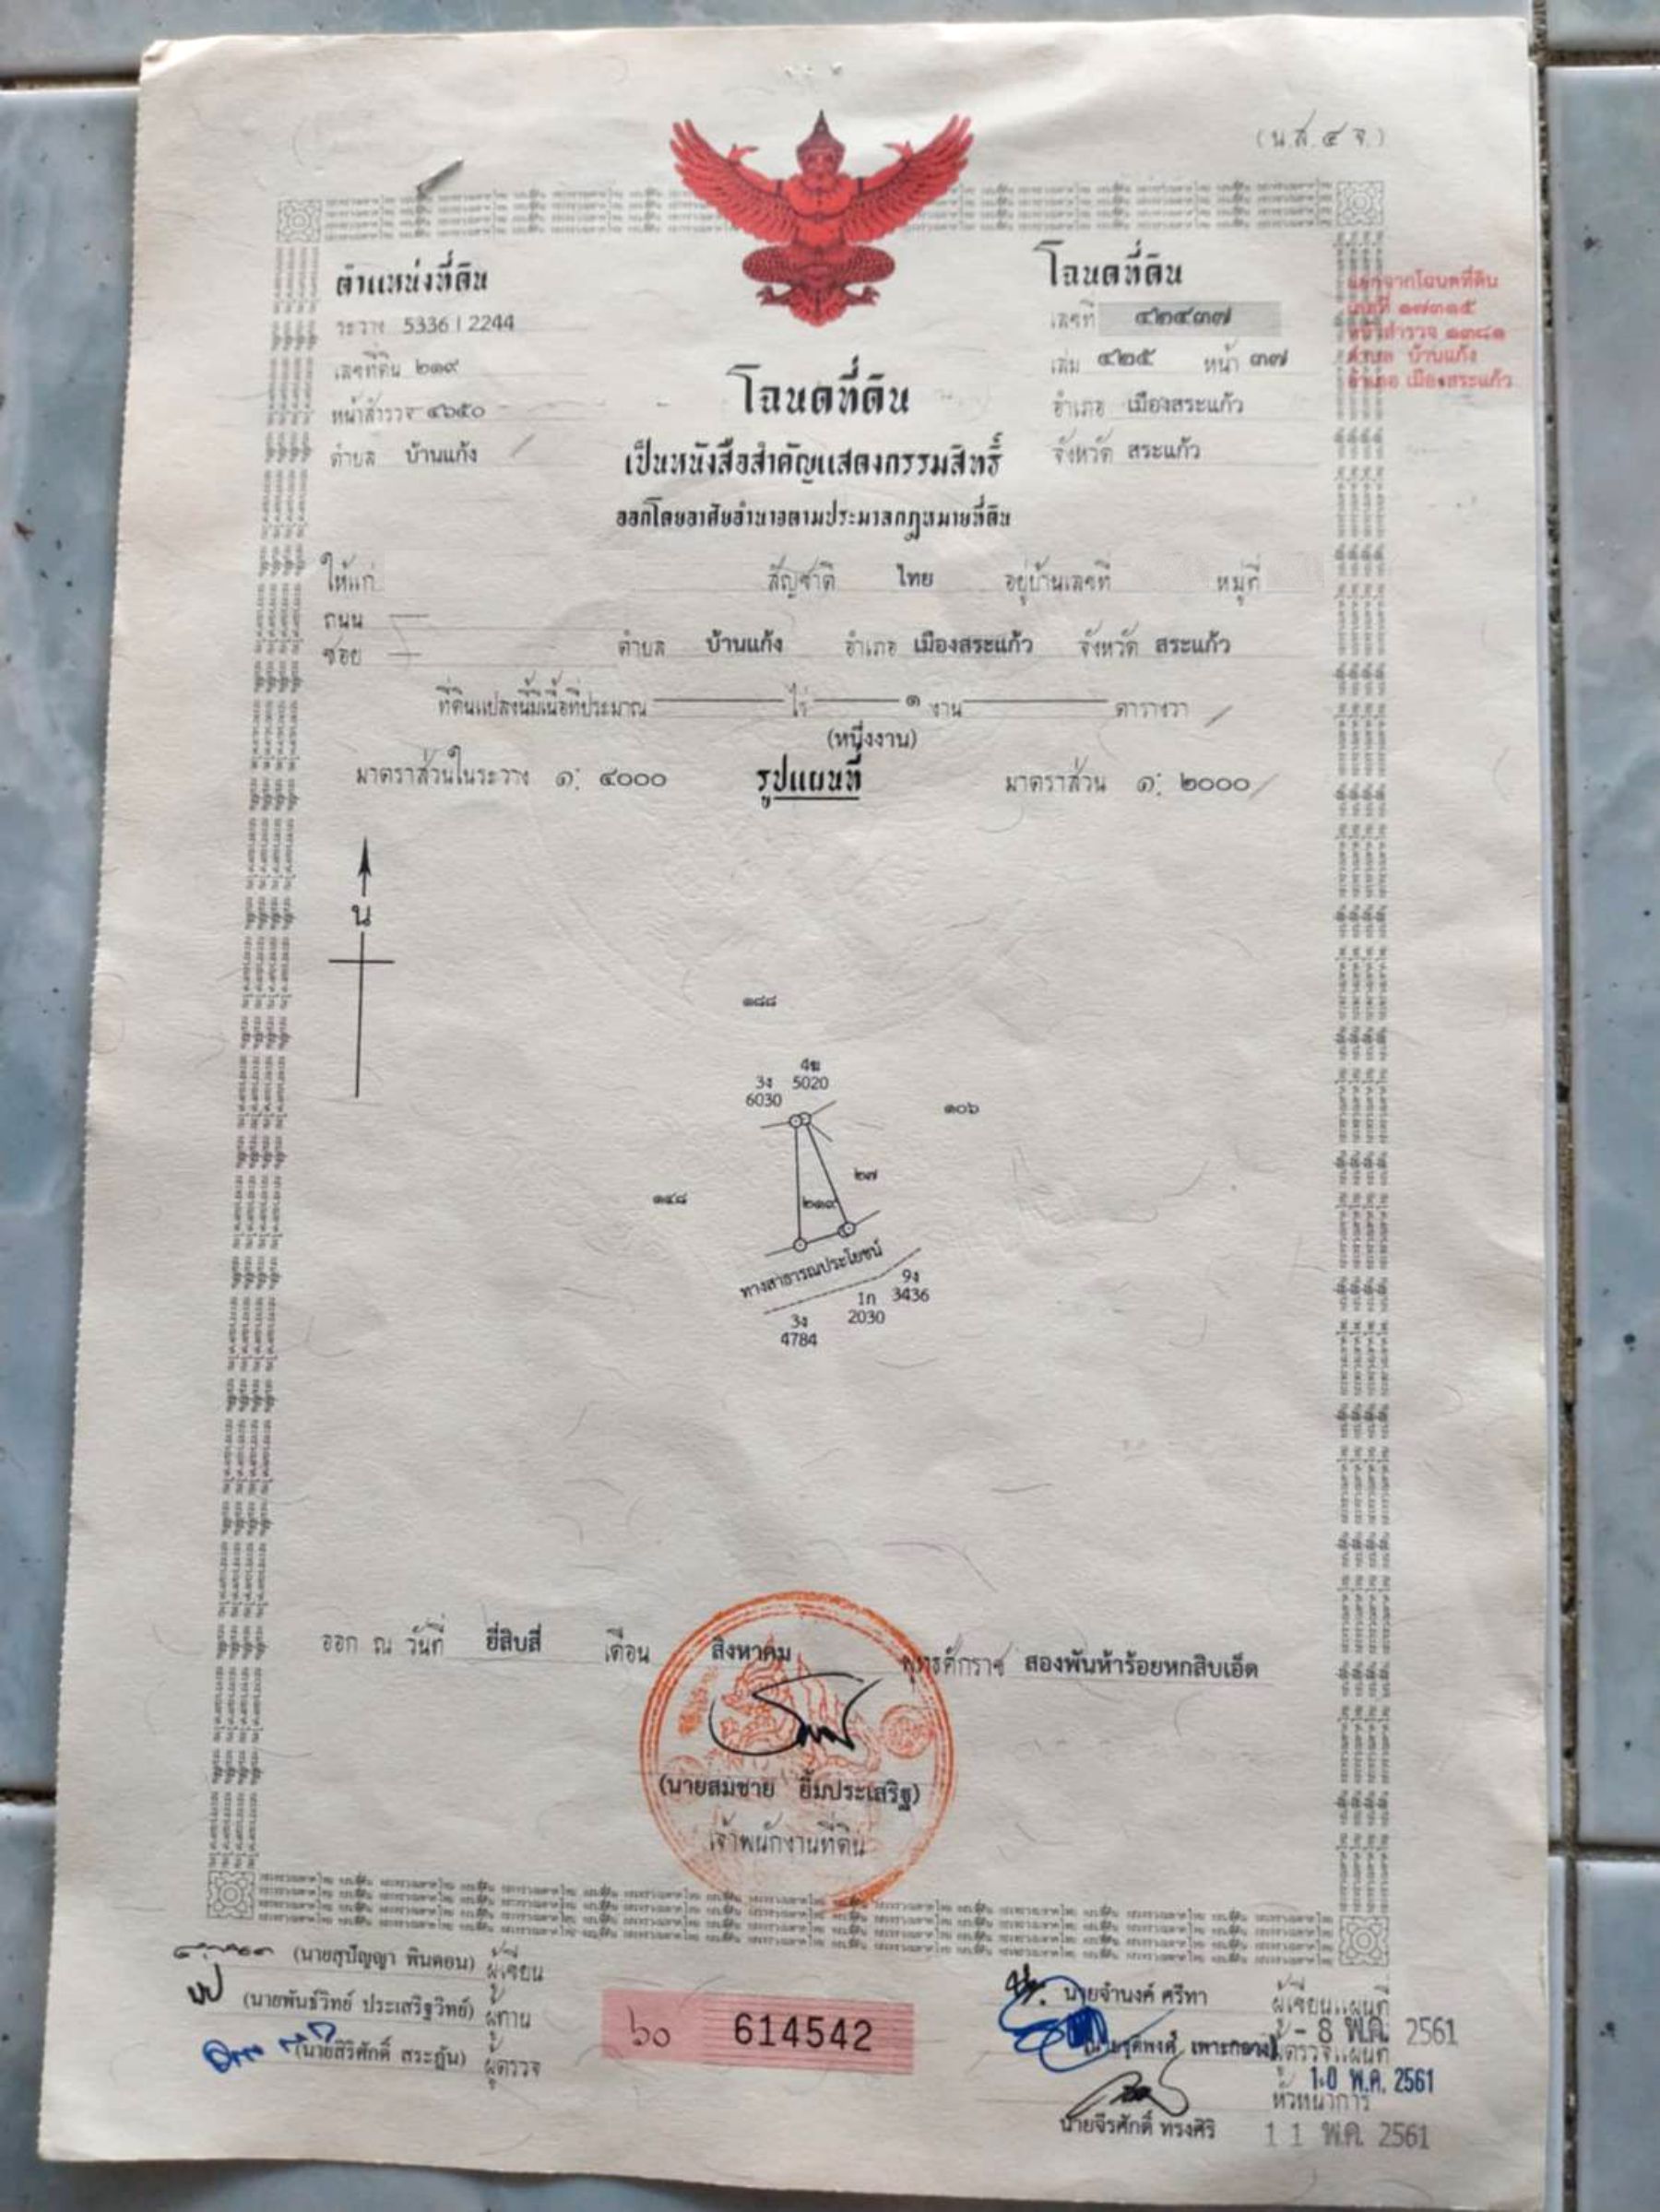 (น.ส. ๔ จ.)
ตำแหน่งที่ดิน
ระวาง 5336 I 2244
เลขที่ดิน ๒๑๙
หน้าสำรวจ ๔๖๕๐
ตำบล บ้านแก้ง
โฉนดที่ดิน
เลขที่ ๔๒๔๓๗
เล่ม ๔๒๕ หน้า ๓๗
อำเภอ เมืองสระแก้ว
จังหวัด สระแก้ว
แยกจากโฉนดที่ดิน
เลขที่ ๑๗๓๑๕
หน้าสำรวจ ๑๓๘๑
ตำบล บ้านแก้ง
อำเภอ เมืองสระแก้ว
โฉนดที่ดิน
เป็นหนังสือสำคัญแสดงกรรมสิทธิ์
ออกโดยอาศัยอำนาจตามประมวลกฎหมายที่ดิน
ให้แก่ สัญชาติ ไทย อยู่บ้านเลขที่ หมู่ที่
ถนน
ซอย ตำบล บ้านแก้ง อำเภอ เมืองสระแก้ว จังหวัด สระแก้ว
ที่ดินแปลงนี้มีเนื้อที่ประมาณ ไร่ ๑ งาน ตารางวา
(หนึ่งงาน)
มาตราส่วนในระวาง ๑: ๔๐๐๐ รูปแผนที่ มาตราส่วน ๑: ๒๐๐๐
น
๑๘๘
4ฃ
3ง 5020
6030
๑๐๖
๒๗
๑๔๘
๒๑๙
ทางสาธารณประโยชน์
9ง
1ก 3436
3ง 2030
4784
ออก ณ วันที่ ยี่สิบสี่ เดือน สิงหาคม พุทธศักราช สองพันห้าร้อยหกสิบเอ็ด
(นายสมชาย ยิ้มประเสริฐ)
เจ้าพนักงานที่ดิน
(นายสุปัญญา พินดอน) ผู้เขียน
(นายพันธ์วิทย์ ประเสริฐวิทย์) ผู้ทาน
(นายสิริศักดิ์ สระฎัน) ผู้ตรวจ
๖๐ 614542
นายจำนงค์ ศรีทา ผู้เขียนแผนที่
- 8 พ.ค. 2561
เพาะกลาง) ผู้ตรวจแผนที่
10 พ.ค. 2561
นายจีรศักดิ์ ทรงศิริ
11 พ.ค. 2561